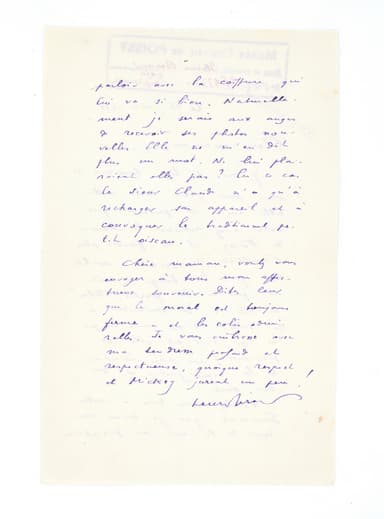 parfois avec la coiffure qui
lui va si bien. Naturelle-
ment je serais aux anges
de recevoir ses photos nou-
velles. Elle ne m'en dit
plus un mot. Ne lui plai-
raient elles pas ? En ce cas
le sieur Claude n'a qu'à
recharger son appareil et à
convoquer le traditionnel pe-
tit oiseau.
Chère maman, voulez vous
envoyer à tous mon affec-
tueux souvenir. Dites leur
que le moral est toujours
ferme - et les colis
Je vous embrasse avec
ma tendresse profonde et
respectueuse, quoique respect
et Mickey jurent un peu !